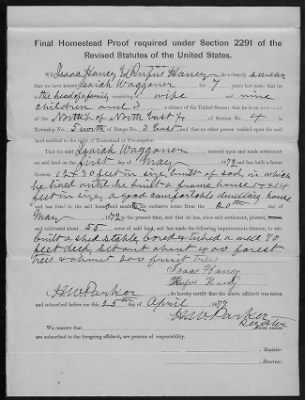 Final Homestead Proof required under Section 2291 of the
Revised Statutes of the United States.
We, Isaac Haney & Rufus Haney do solemnly swear
that we have known Isaiah Waggoner for 7 years last past; that he
is the head of a family consisting of wife and nine
children and is a citizen of the United States; that he is an
of the North ½ of North East ¼ of Section No. 4
Township No. 5 north of Range No. 3 East and that no other person resided upon the said
land entitled to the right of Homestead or Pre-emption.
That the said Isaiah Waggoner entered upon and made settlement
on said land on the first day of May, 1872 and has built a house
thereon 12 x 30 feet in size, built of sod, in which
he lived until he built a frame house 14 x 14
feet in size, a good comfortable dwelling house
and has lived in the said house and made it his exclusive home from the 20th day of
May, 1872 to the present time, and that he has, since said settlement, plowed,
and cultivated about 55 acres of said land, and has made the following improvements thereon, to wit:
built a shed stable, bored & tubed a well 90
feet deep, set out about forest
trees & about 200 fruit trees
Isaac Haney
Rufus Haney
I, H.W. Parker, do hereby certify that the above affidavit was taken
and subscribed before me this 25th day of April 1877
H.W. Parker
Register
We certify that
are subscribed to the foregoing affidavit, are persons of respectability.
, Register.
, Receiver.